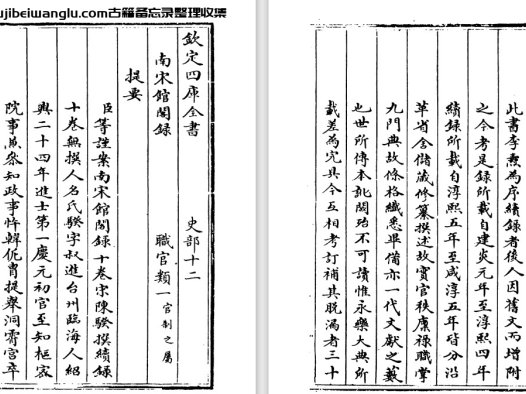 ujibeiwanglu.com古籍备忘录整理收集
欽定四庫全書 史部十二
南宋館閣錄 職官類一官制之屬
提要
臣等謹案南宋館閣錄十卷宋陳騤撰續錄
十卷無撰人名氏騤字叔進台州臨海人紹
興二十四年進士第一慶元初官至知樞密
院事兼參知政事忤韓侂胄提舉洞霄宮卒
此書李燾為序續錄者後人因舊文而增附
之今考是錄所載自建炎元年至淳熙四年
續錄所載自淳熙五年至咸淳五年皆分沿
革省舍儲藏修纂撰述故實官秩廩祿職掌
九門典故條格纖悉畢備亦一代文獻之藪
也世所傳本訛闕殆不可讀惟永樂大典所
載差為完具今互相考訂補其脫漏者三十